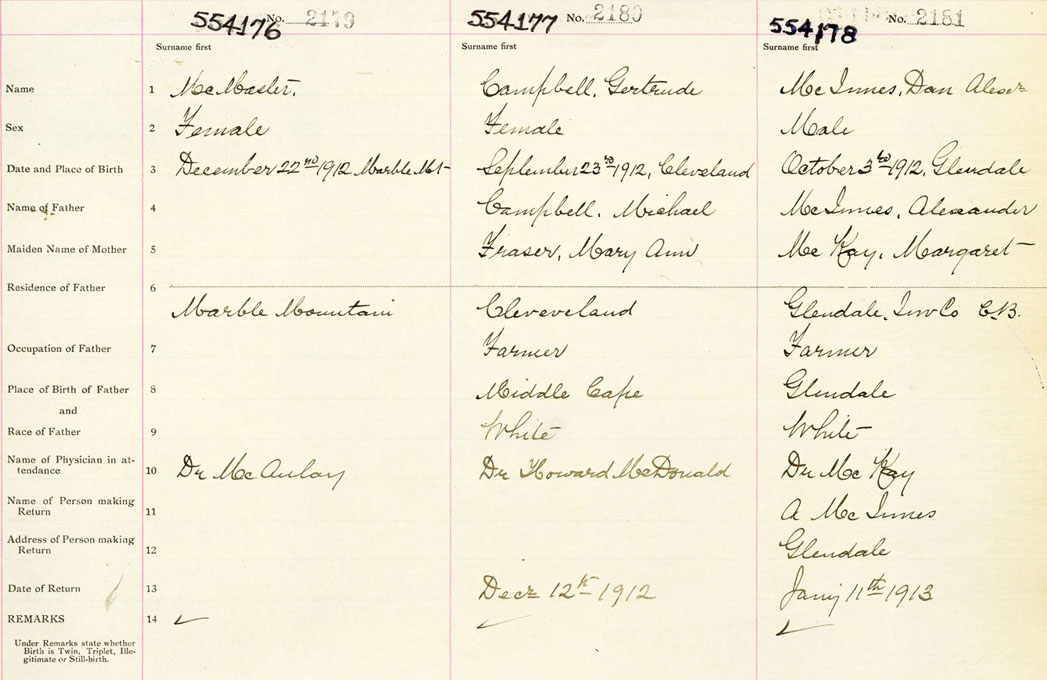 554176 No. 2179
554177 No. 2180
554178 No. 2181
Surname first Surname first Surname first
Name 1 McMaster, Campbell, Gertrude McInnes, Dan Alexr
Sex 2 Female Female Male
Date and Place of Birth 3 December 22nd 1912 Marble Mt September 23rd 1912, Cleveland October 3rd 1912, Glendale
Name of Father 4 Campbell, Michael McInnes, Alexander
Maiden Name of Mother 5 Fraser, Mary Ann McKay, Margaret
Residence of Father 6 Marble Mountain Cleveveland Glendale, Inv Co C.B.
Occupation of Father 7 Farmer Farmer
Place of Birth of Father 8 Middle Cape Glendale
and
Race of Father 9 White White
Name of Physician in at-
tendance 10 Dr McAulay Dr Howard McDonald Dr McKay
Name of Person making
Return 11 A McInnes
Address of Person making
Return 12 Glendale
Date of Return 13 Decr 12th 1912 Jany 11th 1913
REMARKS 14
Under Remarks state whether
Birth is Twin, Triplet, Ille-
gitimate or Still-birth.